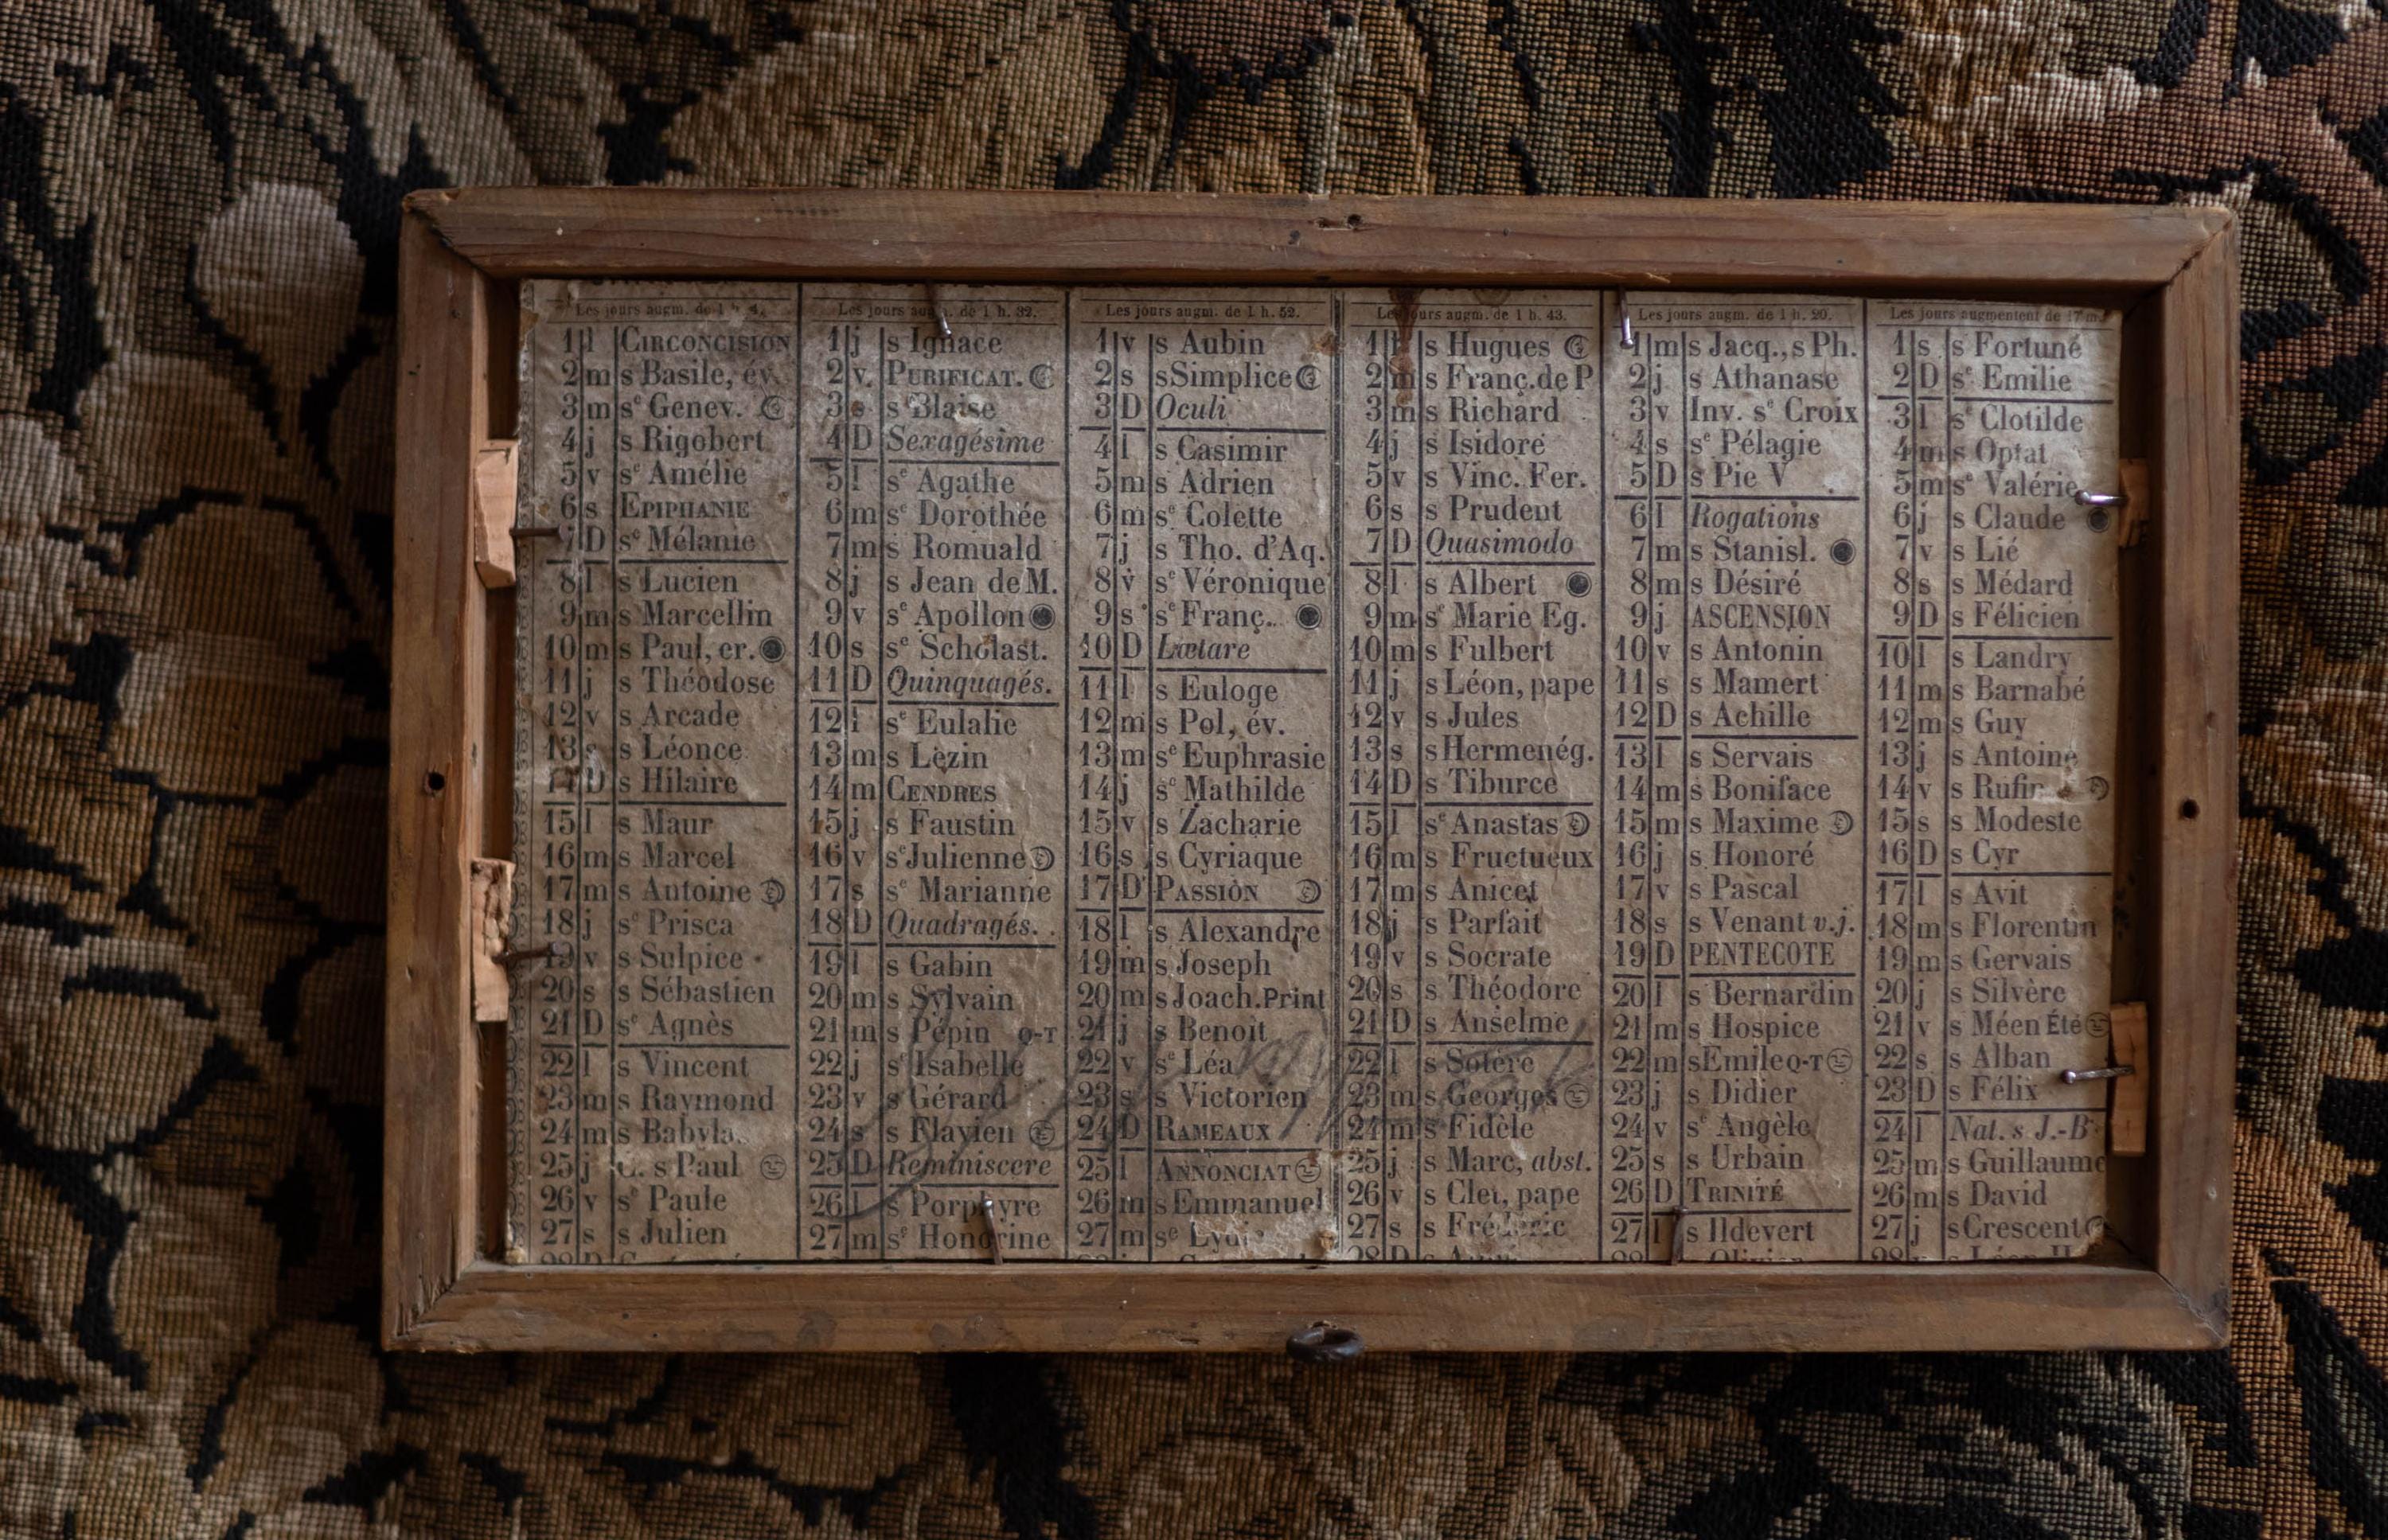 Les jours augm. de 1 h. 4.
1 l CIRCONCISION
2 m s Basile, év.
3 m sᵉ Genev.
4 j s Rigobert
5 v sᵉ Amélie
6 s EPIPHANIE
7 D sᵉ Mélanie
8 l s Lucien
9 m s Marcellin
10 m s Paul, er.
11 j s Théodose
12 v s Arcade
13 s s Léonce
14 D s Hilaire
15 l s Maur
16 m s Marcel
17 m s Antoine
18 j sᵉ Prisca
19 v s Sulpice
20 s s Sébastien
21 D sᵉ Agnès
22 l s Vincent
23 m s Raymond
24 m s Babyla.
25 j C. s Paul
26 v sᵉ Paule
27 s s Julien
28 D
Les jours augm. de 1 h. 32.
1 j s Ignace
2 v. PURIFICAT.
3 s s Blaise
4 D Sexagésime
5 l sᵉ Agathe
6 m sᵉ Dorothée
7 m s Romuald
8 j s Jean de M.
9 v sᵉ Apollon
10 s sᵉ Scholast.
11 D Quinquagés.
12 l sᵉ Eulalie
13 m s Lézin
14 m CENDRES
15 j s Faustin
16 v sᵉ Julienne
17 s sᵉ Marianne
18 D Quadragés.
19 l s Gabin
20 m s Sylvain
21 m s Pépin Q-T
22 j sᵉ Isabelle
23 v s Gérard
24 s s Flavien
25 D Reminiscere
26 l s Porphyre
27 m sᵉ Honorine
Les jours augm. de 1 h. 52.
1 v s Aubin
2 s s Simplice
3 D Oculi
4 l s Casimir
5 m s Adrien
6 m sᵉ Colette
7 j s Tho. d'Aq.
8 v sᵉ Véronique
9 s sᵉ Franç.
10 D Lætare
11 l s Euloge
12 m s Pol, év.
13 m sᵉ Euphrasie
14 j sᵉ Mathilde
15 v s Zacharie
16 s s Cyriaque
17 D PASSION
18 l s Alexandre
19 m s Joseph
20 m s Joach. Print
21 j s Benoît
22 v sᵉ Léa
23 s s Victorien
24 D RAMEAUX
25 l ANNONCIAT
26 m s Emmanuel
27 m sᵉ Lydi
Les jours augm. de 1 h. 43.
1 l s Hugues
2 m s Franç. de P
3 m s Richard
4 j s Isidore
5 v s Vinc. Fer.
6 s s Prudent
7 D Quasimodo
8 l s Albert
9 m sᵉ Marie Eg.
10 m s Fulbert
11 j s Léon, pape
12 v s Jules
13 s s Hermenég.
14 D s Tiburce
15 l sᵉ Anastas
16 m s Fructueux
17 m s Anicet
18 j s Parfait
19 v s Socrate
20 s s Théodore
21 D s Anselme
22 l s Sotère
23 m s Georges
24 m s Fidèle
25 j s Marc, abst.
26 v s Clet, pape
27 s s Frédéric
28 D
Les jours augm. de 1 h. 20.
1 m s Jacq., s Ph.
2 j s Athanase
3 v Inv. sᵉ Croix
4 s sᵉ Pélagie
5 D s Pie V
6 l Rogations
7 m s Stanisl.
8 m s Désiré
9 j ASCENSION
10 v s Antonin
11 s s Mamert
12 D s Achille
13 l s Servais
14 m s Boniface
15 m s Maxime
16 j s Honoré
17 v s Pascal
18 s s Venant v.j.
19 D PENTECOTE
20 l s Bernardin
21 m s Hospice
22 m s Emile Q-T
23 j s Didier
24 v sᵉ Angèle
25 s s Urbain
26 D TRINITÉ
27 l s Ildevert
28 Olivier
Les jours augmentent de 17 m.
1 s s Fortuné
2 D sᵉ Emilie
3 l sᵉ Clotilde
4 m s Optat
5 m sᵉ Valérie
6 j s Claude
7 v s Lié
8 s s Médard
9 D s Félicien
10 l s Landry
11 m s Barnabé
12 m s Guy
13 j s Antoine
14 v s Rufin
15 s s Modeste
16 D s Cyr
17 l s Avit
18 m s Florentin
19 m s Gervais
20 j s Silvère
21 v s Méen Été
22 s s Alban
23 D s Félix
24 l Nat. s J.-B
25 m s Guillaume
26 m s David
27 j s Crescent
28 v s Léon II